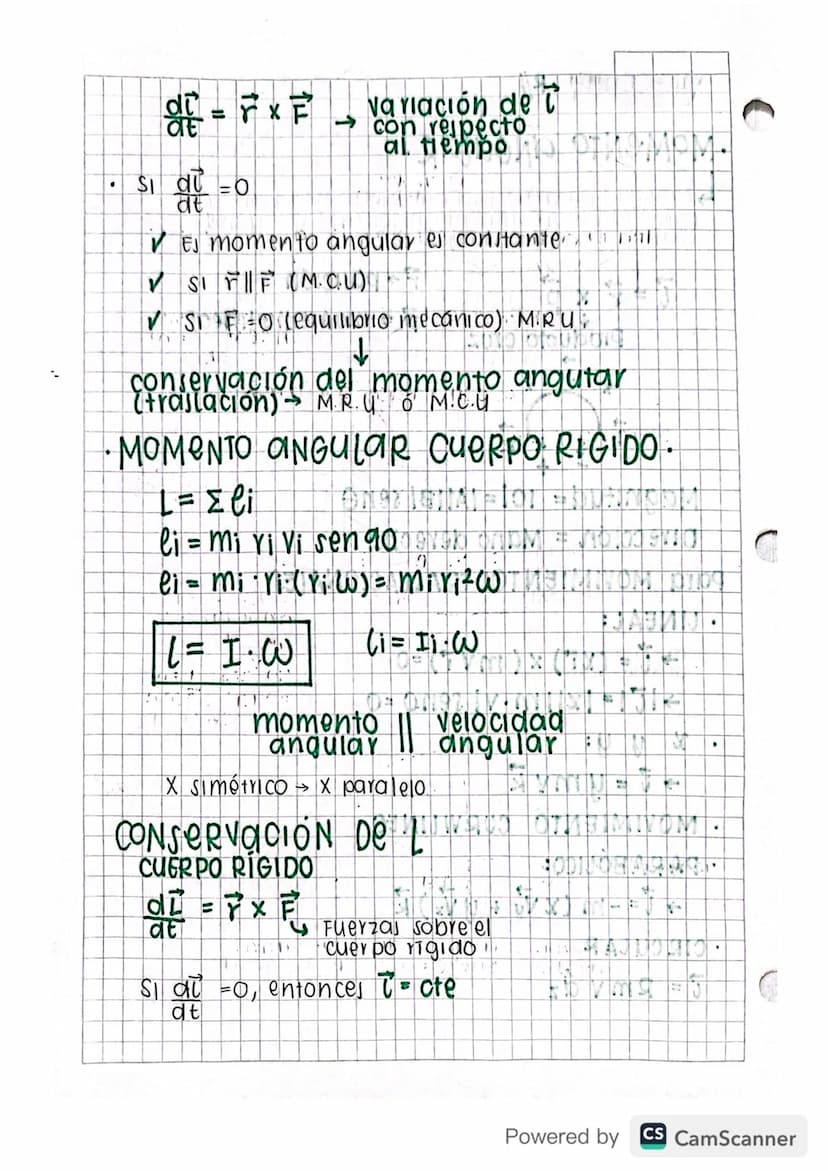 dl⃗/dt = r⃗ x F⃗ → variación de l⃗
con respecto
al tiempo
• Si dl⃗/dt = 0
✓ Es momento angular es constante
✓ Si r⃗ || F⃗ (M.C.U)
✓ Si F⃗ = 0 (equilibrio mecánico) M.R.U.
↓
conservación del momento angular
(traslación) → M.R.U ó M.C.U
• MOMENTO ANGULAR CUERPO RIGIDO.
L = Σ li
li = mi ri vi sen 90
li = mi · ri · (ri ω) = mi ri² ω
l = I · ω    li = Ii · ω
momento angular || velocidad angular
X simétrico → X paralelo
CONSERVACIÓN DE L
CUERPO RÍGIDO
dL⃗/dt = r⃗ x F⃗
↳ Fuerzas sobre el
cuerpo rígido
Si dl⃗/dt = 0, entonces l⃗ = cte
Powered by CS CamScanner